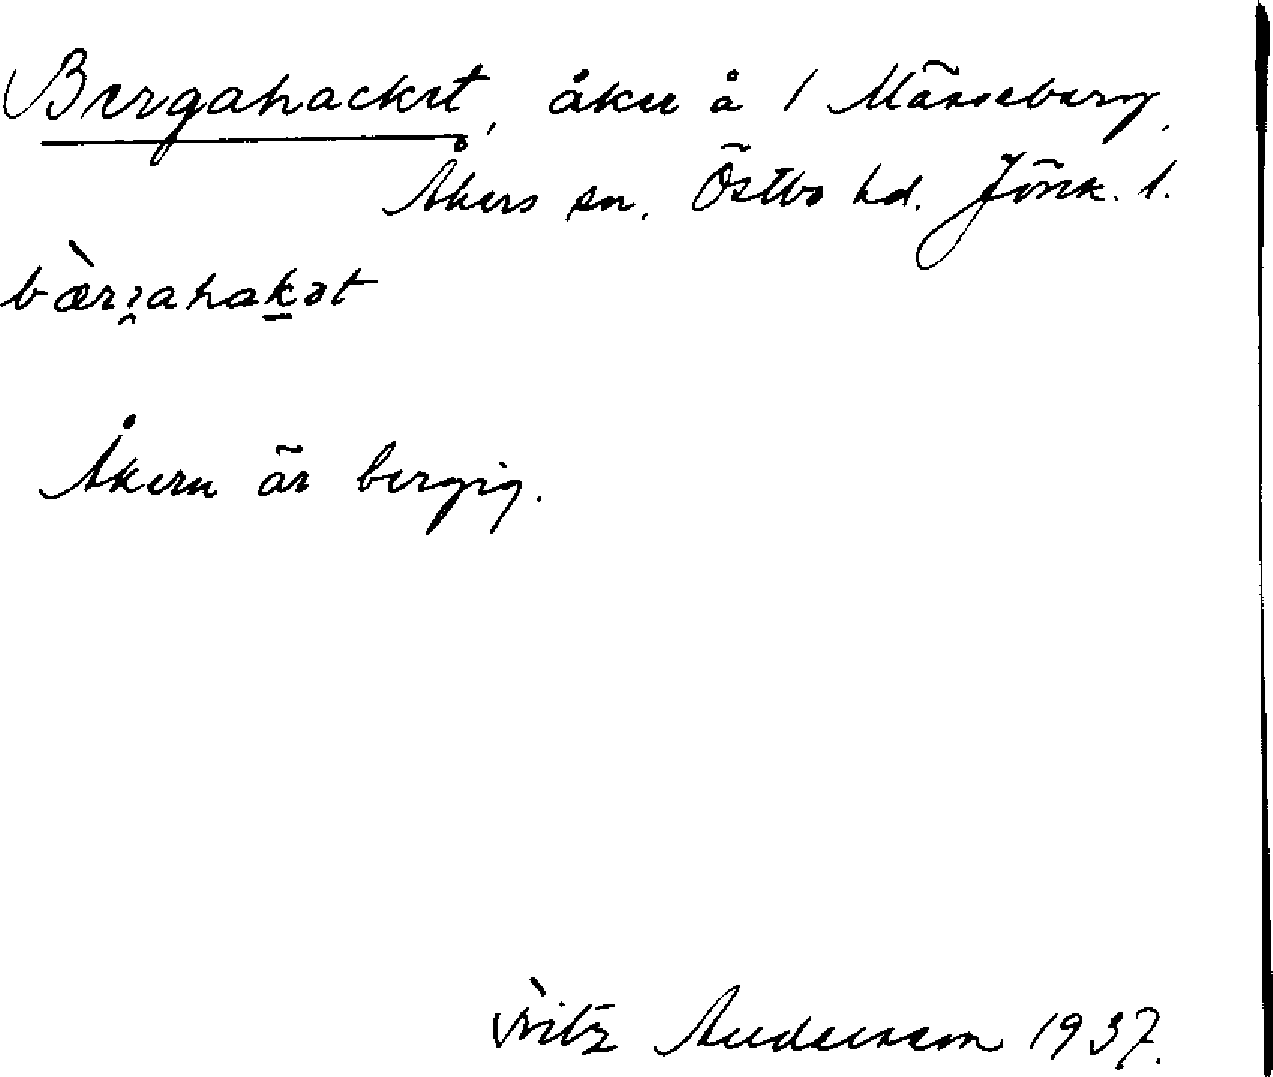 Bergahacket, åker å 1 Mässeberg,
Åkers sn. Östbo hd. Jönk. l.
bærɜahakət
Åkern är bergig.
Fritz Andersson 1937.